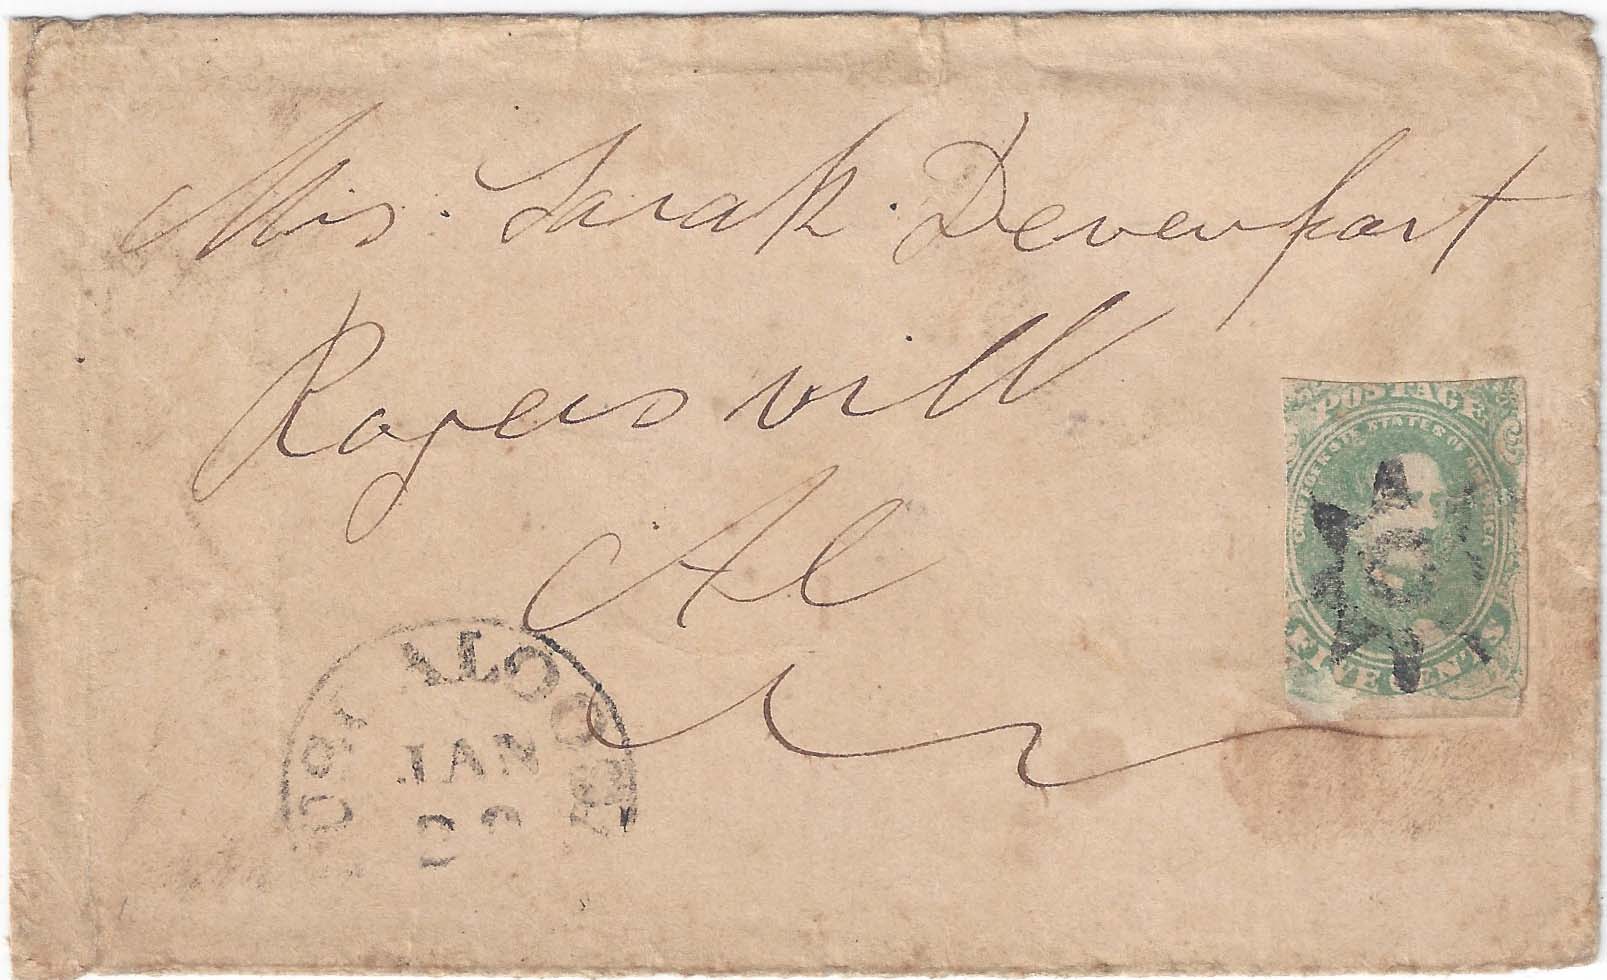 Mis. Sarah. Devenport
Rogersvill
Al
POSTAGE
CONFEDERATE STATES OF AMERICA
FIVE CENTS
JAN